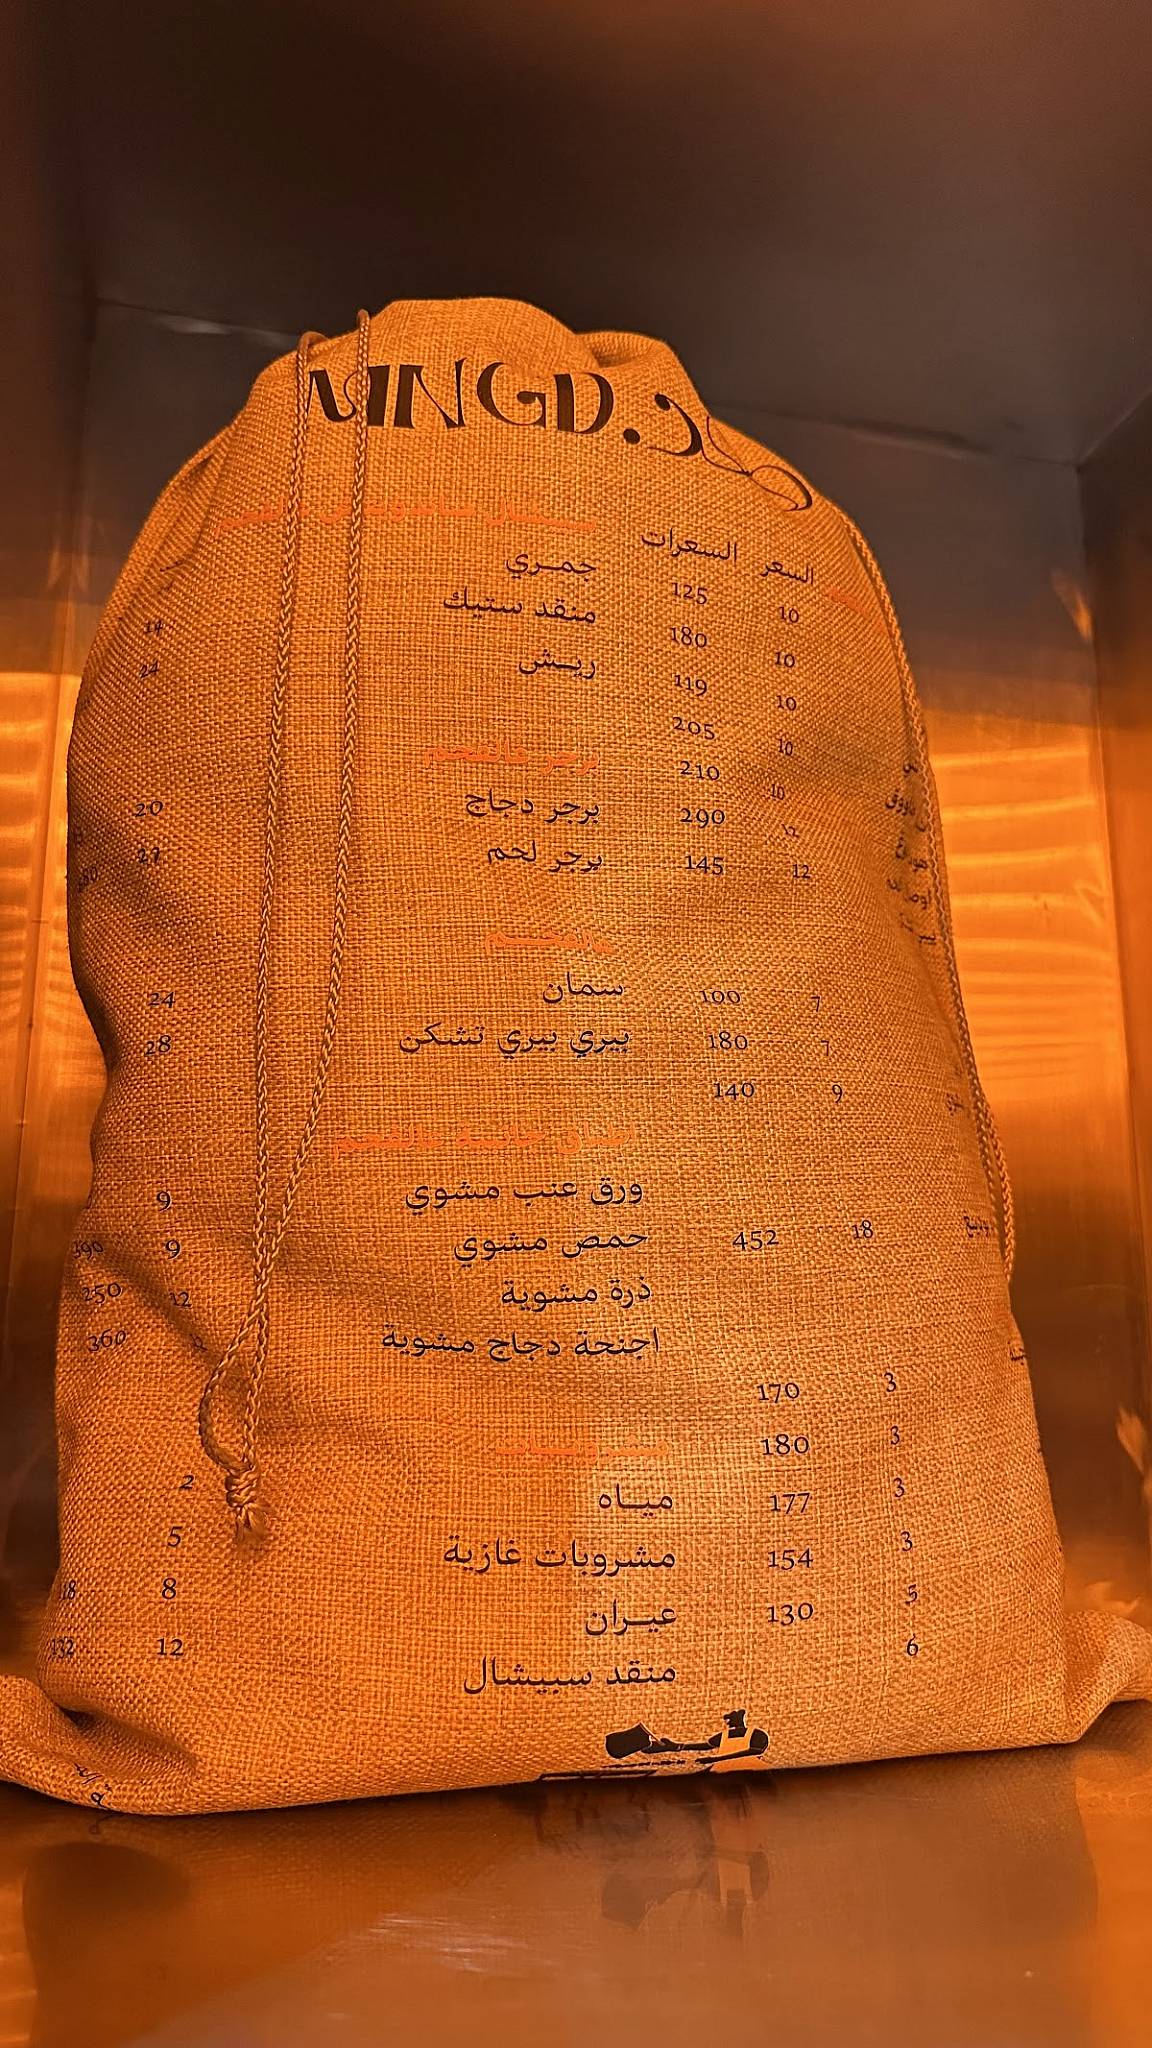 MNGD.
السعر السعرات
10 125
10 180
10 119
10 205
10 210
12 290
12 145
7 100
7 180
9 140
18 452
3 170
3 180
3 177
3 154
5 130
6
سبيشال ساندويتش عالفحم
جمري 14
منقد ستيك 24
ريش
برجر عالفحم
برجر دجاج 20
برجر لحم 27
عالفحم
سمان 24
بيري بيري تشكن 28
اطباق جانبية عالفحم
ورق عنب مشوي 9
حمص مشوي 9 390
ذرة مشوية 12 250
اجنحة دجاج مشوية 12 360
مشروبات
مياه 2
مشروبات غازية 5
عيران 8
منقد سبيشال 12